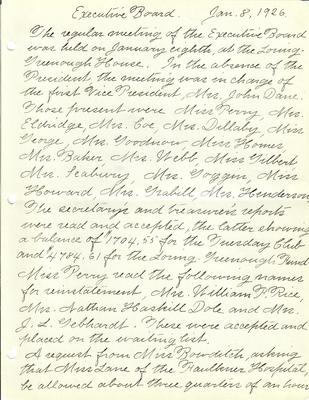 Executive Board. Jan. 8, 1926.
The regular meeting of the Executive Board
was held on January eighth, at the Loring-
Greenough House. In the absence of the
President, the meeting was in charge of
the first Vice President, Mrs. John Dane.
Those present were Miss Perry, Mrs.
Eldridge, Mrs. Coe, Mrs. Dellaby, Miss
George, Mrs. Goodnow, Miss Homes,
Mrs. Baker, Mrs. Webb, Miss Gilbert
Mrs. Seabury, Mrs. Goggin, Miss
Howard, Mrs. Grabill, Mrs. Henderson
The secretary's and treasurer's reports
were read and accepted, the latter showing
a balance of 1704.55 for the Tuesday Club
and 4784.61 for the Loring-Greenough Fund
Miss Perry read the following names
for reinstatement, Mrs. William P. Rice,
Mrs. Nathan Haskell Dole and Mrs.
J. L. Gebhardt. These were accepted and
placed on the waiting list.
A request from Miss Bowditch, asking
that Miss Lane of the Faulkner Hospital,
be allowed about three quarters of an hour